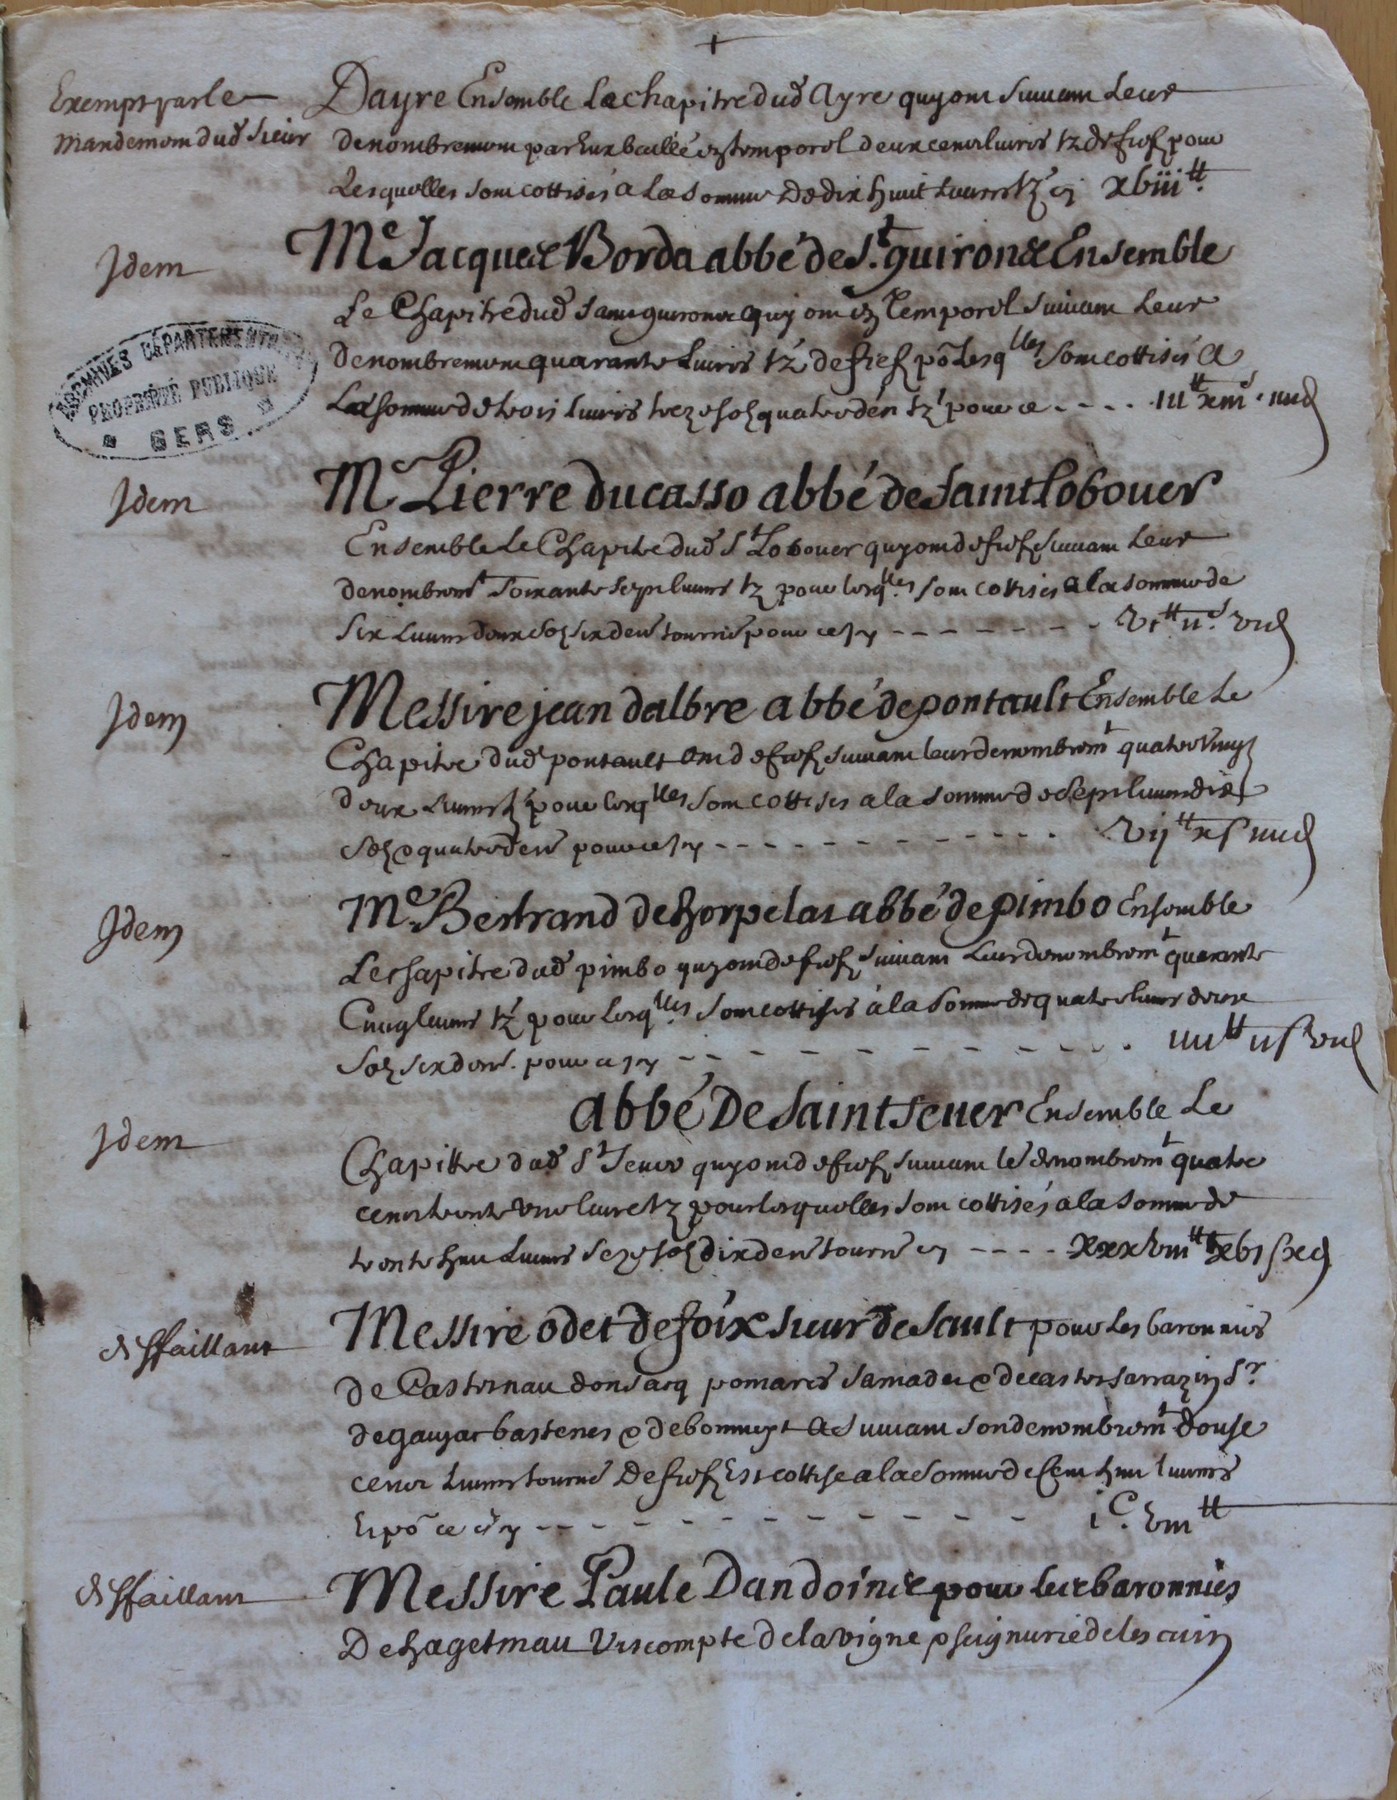 Exempt par le
mandemem dud sieur
Dayre Ensemble Le chapitre dud Ayre quy om suivam Leur
denombremem par eux baillé en temporel deux cens livres tz de fief pour
Lesquelles som cottisés a La somme De dix huit Livres tz cy xviii tt
Idem
Me Jacques Borda abbé de St guirons Ensemble
Le Chapitre dud sainct guirons quy om en Temporel suivam Leur
denombremem quarante Livres tz de fief po Lesqlles som cottisés A
La somme de trois livres treze solz quatre den tz pour ce - - - - iii tt xiii s iiii d
ARCHIVES DÉPARTEMENTALES
PROPRIÉTÉ PUBLIQUE
GERS
Idem
Me Pierre ducasso abbé de saint Lobouer
Ensemble Le Chapitre dud St Lobouer quy om de fief suivam Leur
denombremt soixante sept livres tz pour lesqlles som cottisés a la somme de
six Livres deux solz six den tournois pour ce cy - - - - - - - vi tt ii s vi d
Idem
Messire jean dalbre abbé de pontault Ensemble Le
Chapitre dud pontault om de fief suivam leur denombremt quatre vingt
deux Livres tz pour lesqlles som cottises a la somme de sept livres dix
solz quatre den pour ce cy - - - - - - - - - - - - vij tt x s iiii d
Idem
Me Bertrand de horpelas abbé de pimbo Ensemble
Le chapitre dud pimbo quy om de fief suivam Leur denombremt quarante
Cinq livres tz pour Lesqlles som cottisés a la somme de quatre livres deux
solz six den pour ce cy - - - - - - - - - - - - iiii tt ii s vi d
Idem
abbé De saint sever Ensemble Le
Chapittre dud St sever quy om de fief suivam le denombremt quatre
cens trente une livres tz pour lesquelles som cottisés a la somme de
trente huit Livres seze solz dix den tourn cy - - - - xxxviii tt xvi s x d
deffaillant
Messire odet de foix sieur de sault pour les baronnies
de Castetnau donsacq pomares samadet & de castetsarrazin Sr
de gaujac bastenes & de bonnegt A suivam son denombremt douse
cens Livres tournois De fief Est cottise a la somme de cem huit livres
Et po ce cy - - - - - - - - - - - - - - i C. viii tt
deffaillant
Messire Paule Dandoinie pour les baronnies
De hagetmau Viscompte de lavigne & seignurie de lescuin